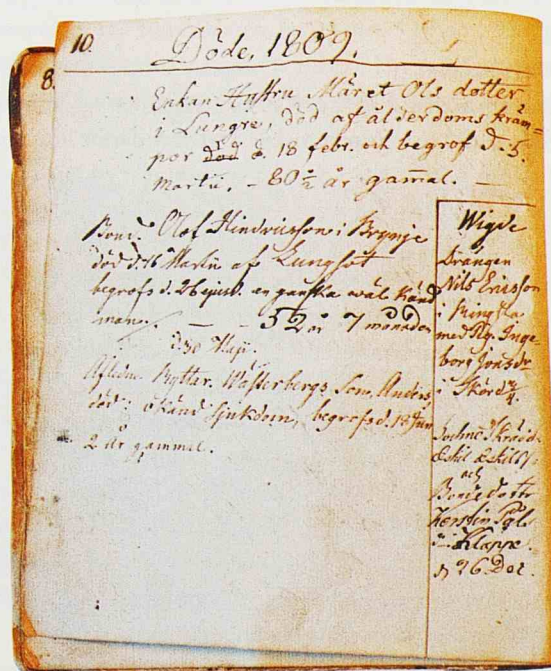 10.
Döde, 1809.
8.
Enkan Hustru Märet Ols dotter
i Lungre, död af ålderdoms kräm=
por död d. 18 febr. och begrof d. 5.
Martii. - 80 ½ år gam̄al. -
Bond. Olof Hindricsson i Brynje
död d. 16 Martii af Lungsot
begrofs d. 26 ejusd. en ganska wäl känd
man. - - 52 år 7 månader
d. 30 Maji.
Afledne Ryttar. Wästerbergs Son, Anders,
död okänd sjukdom, begrofs d. 18 Jun
2 år gammal.
Wigde
Drängen
Nils Ericsson
i Mingsta
med Pig. Inge-
borg Jonsdr
i Skörd
Sochne Skrädd.
Eskil Eskilss.
och
Bonde dottr
Kerstin
i Klappe.
d. 26 Dec.